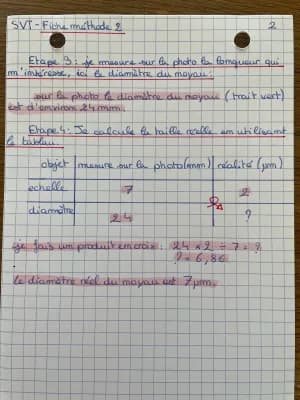 SVT - Fiche méthode 2
2
Etape 3: Je mesure sur la photo la longueur qui
m'intéresse, ici le diamètre du noyau:
sur la photo le diamètre du noyau (trait vert)
est d'environ 24mm.
Etape 4: Je calcule la taille réelle en utilisant
le tableau
objet mesure sur la photo(mm) réalité (µm)
échelle 7 2
diamètre 24 ?
je fais un produit en croix: 24 × 2 ÷ 7 = ?
? = 6,86
le diamètre réel du noyau est 7µm.